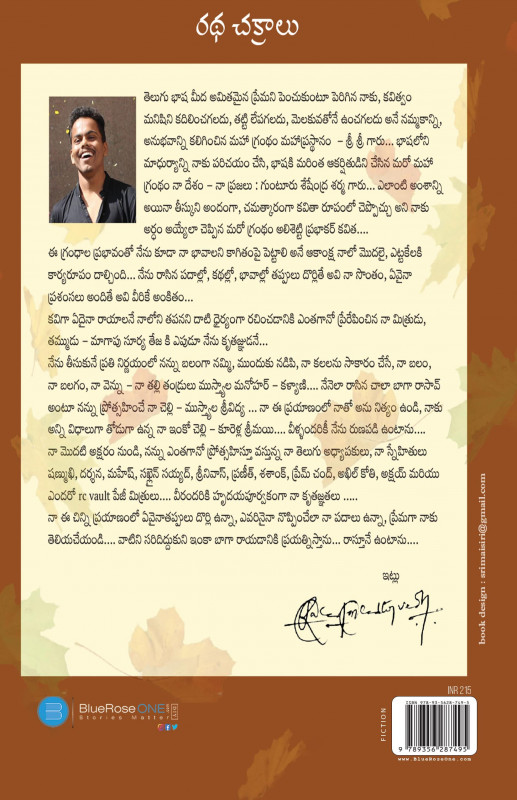 రథ చక్రాలు
తెలుగు భాష మీద అమితమైన ప్రేమని పెంచుకుంటూ పెరిగిన నాకు, కవిత్వం
మనిషిని కదిలించగలదు, తట్టి లేపగలదు, మెలకువతోనే ఉంచగలదు అనే నమ్మకాన్ని,
అనుభవాన్ని కలిగించిన మహా గ్రంథం మహాప్రస్థానం – శ్రీ శ్రీ గారు... భాషలోని
మాధుర్యాన్ని నాకు పరిచయం చేసి, భాషకి మరింత ఆకర్షితుడిని చేసిన మరో మహా
గ్రంథం నా దేశం – నా ప్రజలు : గుంటూరు శేషేంద్ర శర్మ గారు... ఎలాంటి అంశాన్ని
అయినా తీస్కుని అందంగా, చమత్కారంగా కవితా రూపంలో చెప్పొచ్చు అని నాకు
అర్థం అయ్యేలా చెప్పిన మరో గ్రంథం అలిశెట్టి ప్రభాకర్ కవిత....
ఈ గ్రంధాల ప్రభావంతో నేను కూడా నా భావాలని కాగితంపై పెట్టాలి అనే ఆకాంక్ష నాలో మొదలై, ఎట్టకేలకి
కార్యరూపం దాల్చింది... నేను రాసిన పదాల్లో, కథల్లో, భావాల్లో తప్పులు దొర్లితే అవి నా సొంతం, ఏవైనా
ప్రశంసలు అందితే అవి వీరికే అంకితం...
కవిగా ఏదైనా రాయాలనే నాలోని తపనని దాటి ధైర్యంగా రచించడానికి ఎంతగానో ప్రేరేపించిన నా మిత్రుడు,
తమ్ముడు – మాగాపు సూర్య తేజ కి ఎపుడూ నేను కృతజ్ఞుడనే...
నేను తీసుకునే ప్రతి నిర్ణయంలో నన్ను బలంగా నమ్మి, ముందుకు నడిపి, నా కలలను సాకారం చేసే, నా బలం,
నా బలగం, నా వెన్ను – నా తల్లి తండ్రులు ముస్త్యాల మనోహర్ – కళ్యాణి.... నేనెలా రాసిన చాలా బాగా రాసావ్
అంటూ నన్ను ప్రోత్సహించే నా చెల్లి – ముస్త్యాల శ్రీవిద్య ... నా ఈ ప్రయాణంలో నాతో అను నిత్యం ఉండి, నాకు
అన్ని విధాలుగా తోడుగా ఉన్న నా ఇంకో చెల్లి – కూరెళ్ల శ్రీమయి.... వీళ్ళందరికీ నేను రుణపడి ఉంటాను....
నా మొదటి అక్షరం నుండి, నన్ను ఎంతగానో ప్రోత్సహిస్తూ వస్తున్న నా తెలుగు అధ్యాపకులు, నా స్నేహితులు
షణ్ముఖి, దర్శన, మహేష్, సయ్యద్, శ్రీనివాస్, ప్రణీత్, శశాంక్, ప్రేమ్ చంద్, అఖిల్ కోతి, అక్షయ్ మరియు
ఎందరో rc vault పేజీ మిత్రులు.... వీరందరికి హృదయపూర్వకంగా నా కృతజ్ఞతలు .....
నా ఈ చిన్ని ప్రయాణంలో ఏవైనాతప్పులు దొర్లి ఉన్నా, ఎవరినైనా నొప్పించేలా నా పదాలు ఉన్నా, ప్రేమగా నాకు
తెలియచేయండి.... వాటిని సరిదిద్దుకుని ఇంకా బాగా రాయడానికి ప్రయత్నిస్తాను... రాస్తూనే ఉంటాను....
ఇట్లు
book design : srimaisiri@gmail.com
BlueRoseONE.com
Stories Matter
INR 215
FICTION
ISBN 978-93-5628-749-5
9 789356 287495
www.BlueRoseOne.com